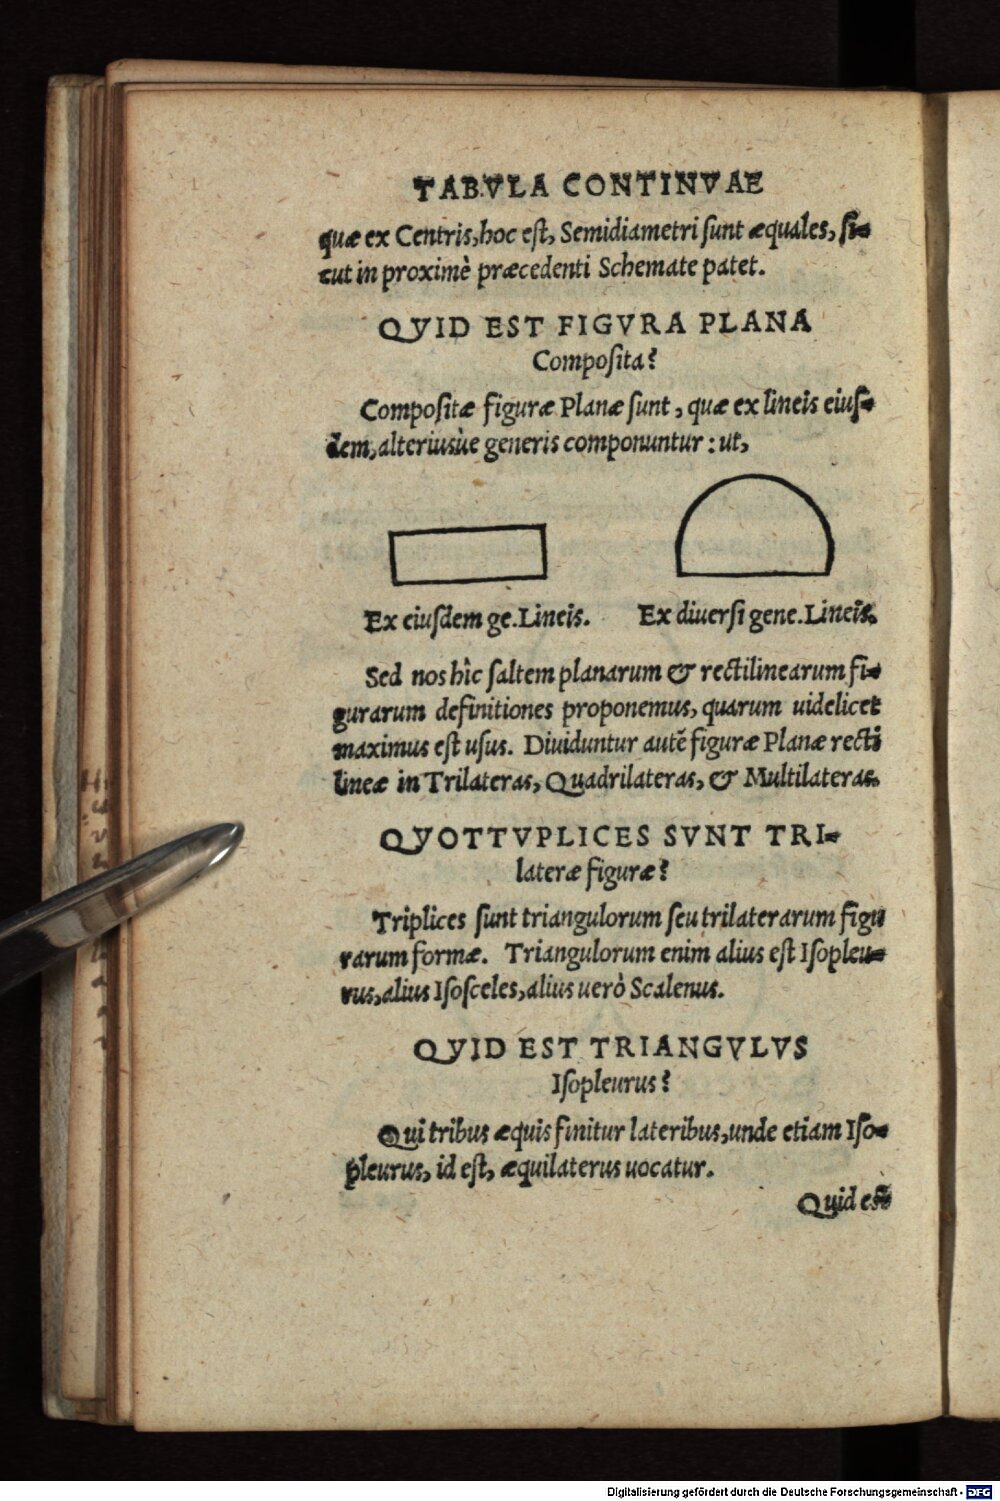 TABVLA CONTINVAE
quæ ex Centris, hoc est, Semidiametri sunt æquales, si-
cut in proximè præcedenti Schemate patet.
QVID EST FIGVRA PLANA
Composita?
Compositæ figuræ Planæ sunt, quæ ex lineis eius-
dem, alteriusùe generis componuntur: ut,
Ex eiusdem ge. Lineis. Ex diuersi gene. Lineis.
Sed nos hîc saltem planarum & rectilinearum fi-
gurarum definitiones proponemus, quarum uidelicet
maximus est usus. Diuiduntur autẽ figuræ Planæ recti
lineæ in Trilateras, Quadrilateras, & Multilateras.
QVOTTVPLICES SVNT TRI-
lateræ figuræ?
Triplices sunt triangulorum seu trilaterarum figu
rarum formæ. Triangulorum enim alius est Isopleu-
rus, alius Isosceles, alius uerò Scalenus.
QVID EST TRIANGVLVS
Isopleurus?
Qui tribus æquis finitur lateribus, unde etiam Iso-
pleurus, id est, æquilaterus uocatur.
Quid est
Digitalisierung gefördert durch die Deutsche Forschungsgemeinschaft - DFG